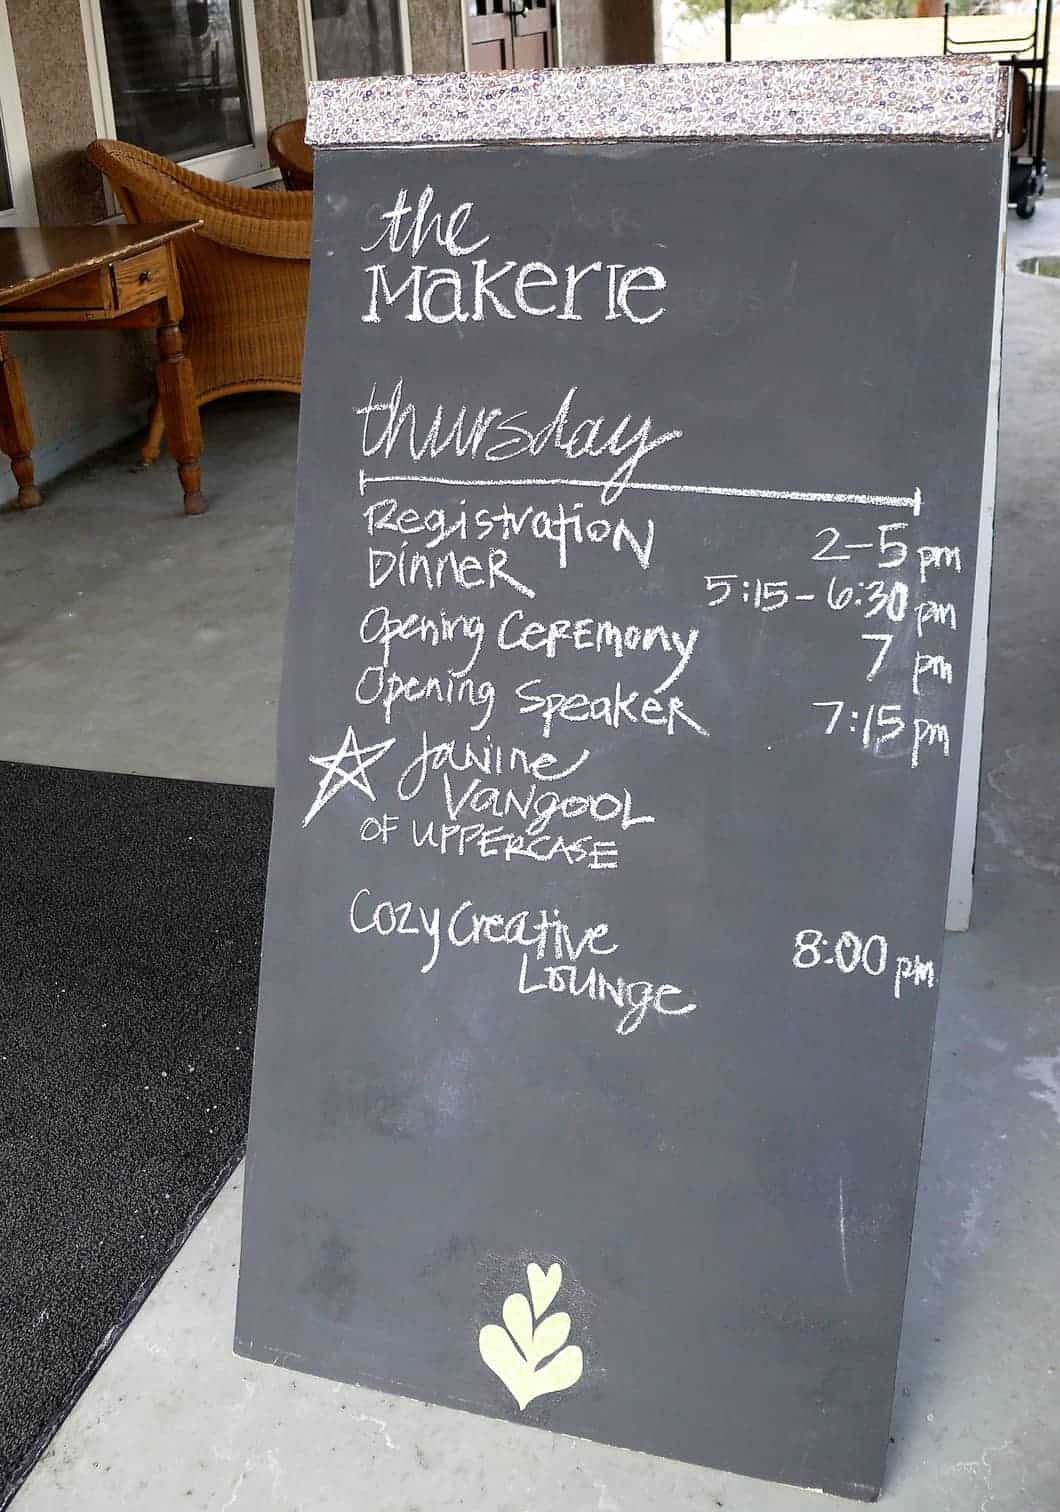 the
Makerie
thursday
Registration 2-5 pm
Dinner 5:15-6:30 pm
Opening Ceremony 7 pm
Opening Speaker 7:15 pm
Janine
Vangool
OF UPPERCASE
Cozy Creative
Lounge 8:00 pm